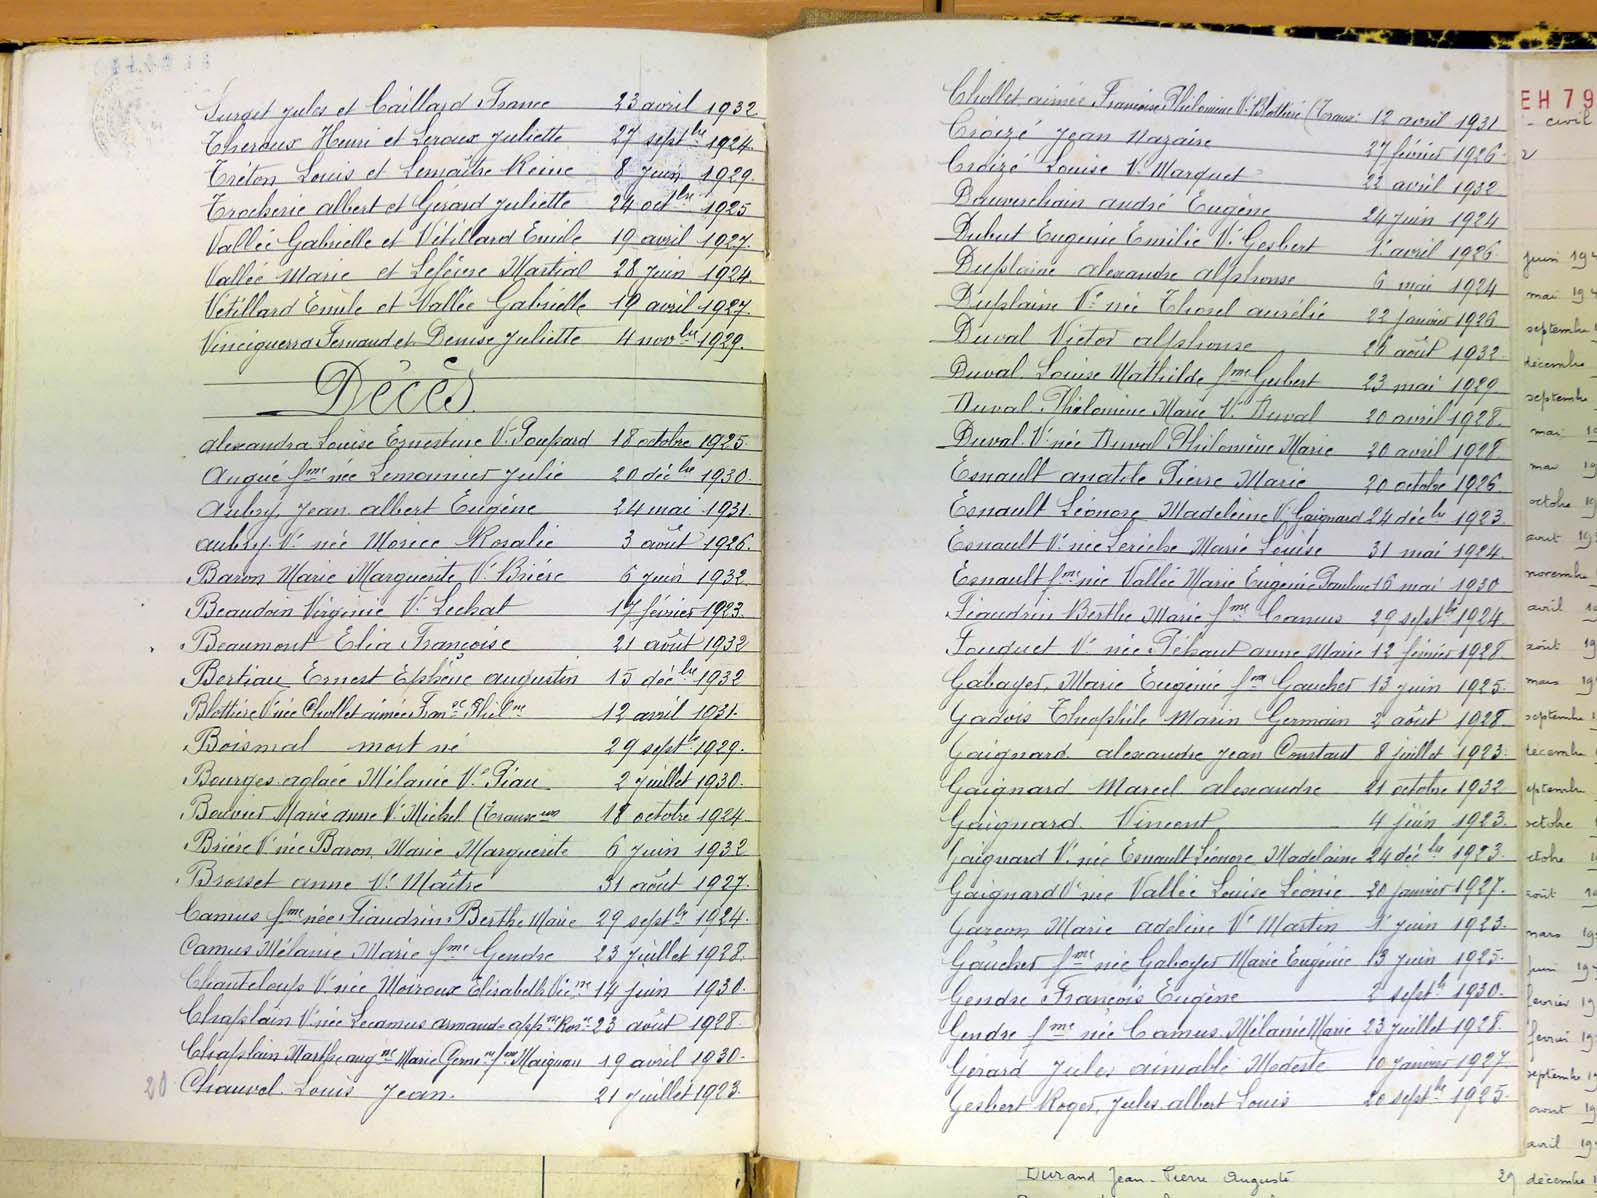 Surget Jules et Caillard France 23 avril 1932
Theroux Henri et Leroux Juliette 27 septbre 1924.
Tréton Louis et Lemaître Reine 8 Juin 1929.
Trocherie albert et Gérard Juliette 24 octbre 1925
Vallée Gabrielle et Vétillard Emile 19 avril 1927.
Vallée Marie et Lefèvre Martial 28 Juin 1924.
Vétillard Emile et Vallée Gabrielle 19 avril 1927.
Vinciguerra Fernand et Denise Juliette 4 novbre 1929.
Décès
alexandra Louise Ernestine Ve Poupard 18 octobre 1925
Augué fme née Lemonnier Julie 20 décbre 1930.
Aubry Jean albert Eugène 24 mai 1931.
aubry Ve née Morice Rosalie 3 août 1926.
Baron Marie Marguerite Ve Brière 6 Juin 1932.
Beaudoin Virginie Ve Lechat 17 février 1923.
Beaumont Elia Françoise 21 août 1932
Bertiau Ernest Ephène augustin 15 décbre 1932
Blottière Vve née Chollet aimée Franse Philme 12 avril 1931.
Boismal mort né 29 septe 1929.
Bourges aglaée Mélanie Ve Piau 2 Juillet 1930.
Bouvier Marie anne Ve Michel (Transon) 18 octobre 1924
Brière Ve née Baron Marie Marguerite 6 Juin 1932
Brosset anne Ve Maître 31 août 1927.
Camus fme née Fiaudrin Berthe Marie 29 septbr 1924.
Camus Mélanie Marie fme Gendre 23 Juillet 1928.
Chanteloup Ve née Moiroux Elisabeth Vicne 14 juin 1930.
Chaplain Vve née Lecamus armande appne Rosne 23 août 1928.
Chaplain Marthe augne Marie Germne fme Maignan 19 avril 1930.
20 Chauvel Louis Jean. 21 Juillet 1923.
Chollet aimée Françoise Philomène Ve Blottière (Trans: 12 avril 1931
Croizé Jean Nazaire 27 février 1926.
Croizé Louise Ve Marquet 22 avril 1932
Dauverchain andré Eugène 24 Juin 1924
Dubut Eugénie Emilie Ve Gesbert 1er avril 1926.
Duplaine alexandre alphonse 6 mai 1924
Duplaine Ve née Thorel aurélie 22 janvier 1926
Duval Victor alphonse 26 août 1932
Duval Louise Mathilde fme Gesbert 23 mai 1929
Duval Philomène Marie Ve Duval 20 avril 1928.
Duval Ve née Duval Philomène Marie 20 avril 1928
Esnault anatole Pierre Marie 20 octobre 1926.
Esnault Léonore Madeleine Ve Gaignard 24 décbre 1923.
Esnault Ve née Leriche Marie Louise 31 mai 1924.
Esnault fme née Vallée Marie Eugénie Pauline 16 mai 1930
Fiaudrin Berthe Marie fme Camus 29 septbr 1924.
Fouquet Ve née Péhaut anne Marie 12 février 1928.
Gaboyer Marie Eugénie fme Gaucher 13 Juin 1925.
Gadois Théophile Marin Germain 2 août 1928
Gaignard alexandre Jean Constant 8 juillet 1923.
Gaignard Marcel alexandre 21 octobre 1932
Gaignard Vincent 4 juin 1923.
Gaignard Ve née Esnault Léonore Madelaine 24 décbre 1923.
Gaignard Ve née Vallée Louise Léonie 20 janvier 1927.
Garcon Marie adeline Ve Martin 1er Juin 1923.
Gaucher fme née Gaboyer Marie Eugénie 13 Juin 1925.
Gendre François Eugène 2 septe 1930.
Gendre fme née Camus Mélanie Marie 23 juillet 1928.
Gérard Jules aimable Modeste 10 Janvier 1927.
Gesbert Roger, Jules albert Louis 20 septbre 1925.
EH 79
civil
juin 19
mai 19
septembre
décembre
septembre
mai 19
mai 19
octobre 19
aout 19
novembre
avril 19
août 19
mars 19
septembre
decembre
eptembre
octobre
ctobre
août
mars 19
juin 19
fevrier 19
fevrier 19
septembre 19
aout 19
avril 19
Durand Jean-Pierre Auguste 29 décembre